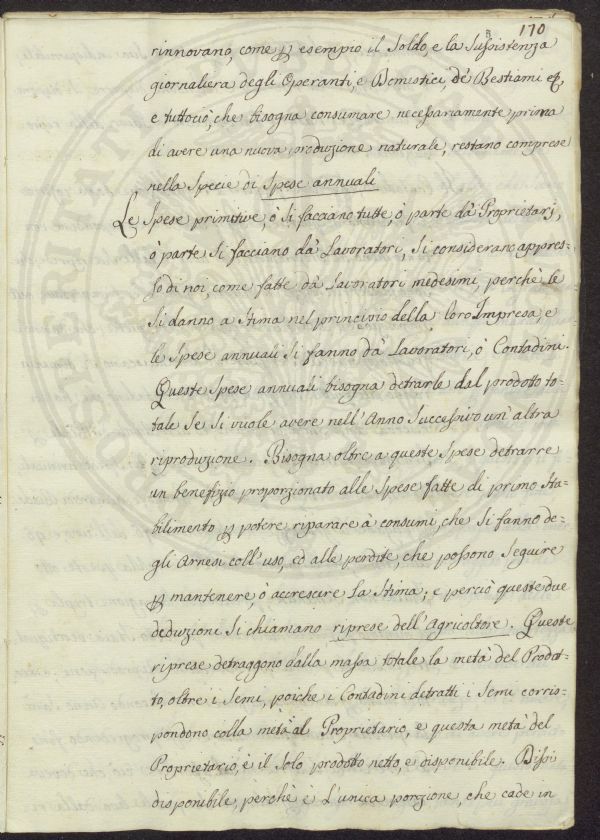 170
rinnovano, come ꝑ esempio il Soldo, e la Sussistenza
giornaliera degli Operanti, e Domestici, dè Bestiami &,
e tuttociò, che bisogna consumare necessariamente prima
di avere una nuova produzione naturale, restano comprese
nella Specie di Spese annuali
Le Spese primitive, ò si facciano tutte, ò parte dà Proprietarj,
ò parte si facciano dà Lavoratori, si considerano appres-
so di noi, come fatte dà Lavoratori medesimi, perchè le
si danno a Stima nel principio della loro Impresa, e
le Spese annuali si fanno dà Lavoratori, ò Contadini.
Queste Spese annuali bisogna detrarle dal prodotto to-
tale se si vuole avere nell'Anno Successivo un'altra
riproduzione. Bisogna oltre a queste Spese detrarre
un benefizio proporzionato alle Spese fatte di primo Sta-
bilimento ꝑ potere riparare à consumi, che si fanno de-
gli Arnesi coll'uso, ed alle perdite, che possono seguire
ꝑ mantenere, ò accrescere la Stima; e perciò queste due
deduzioni si chiamano riprese dell'Agricoltore. Queste
riprese detraggono dalla massa totale la metà del Prodot-
to, oltre i Semi, poiche i Contadini detratti i Semi corris-
pondono colla metà al Proprietario, e questa metà del
Proprietario, è il solo prodotto netto, e disponibile. Dissi
disponibile, perchè è l'unica porzione, che cade in